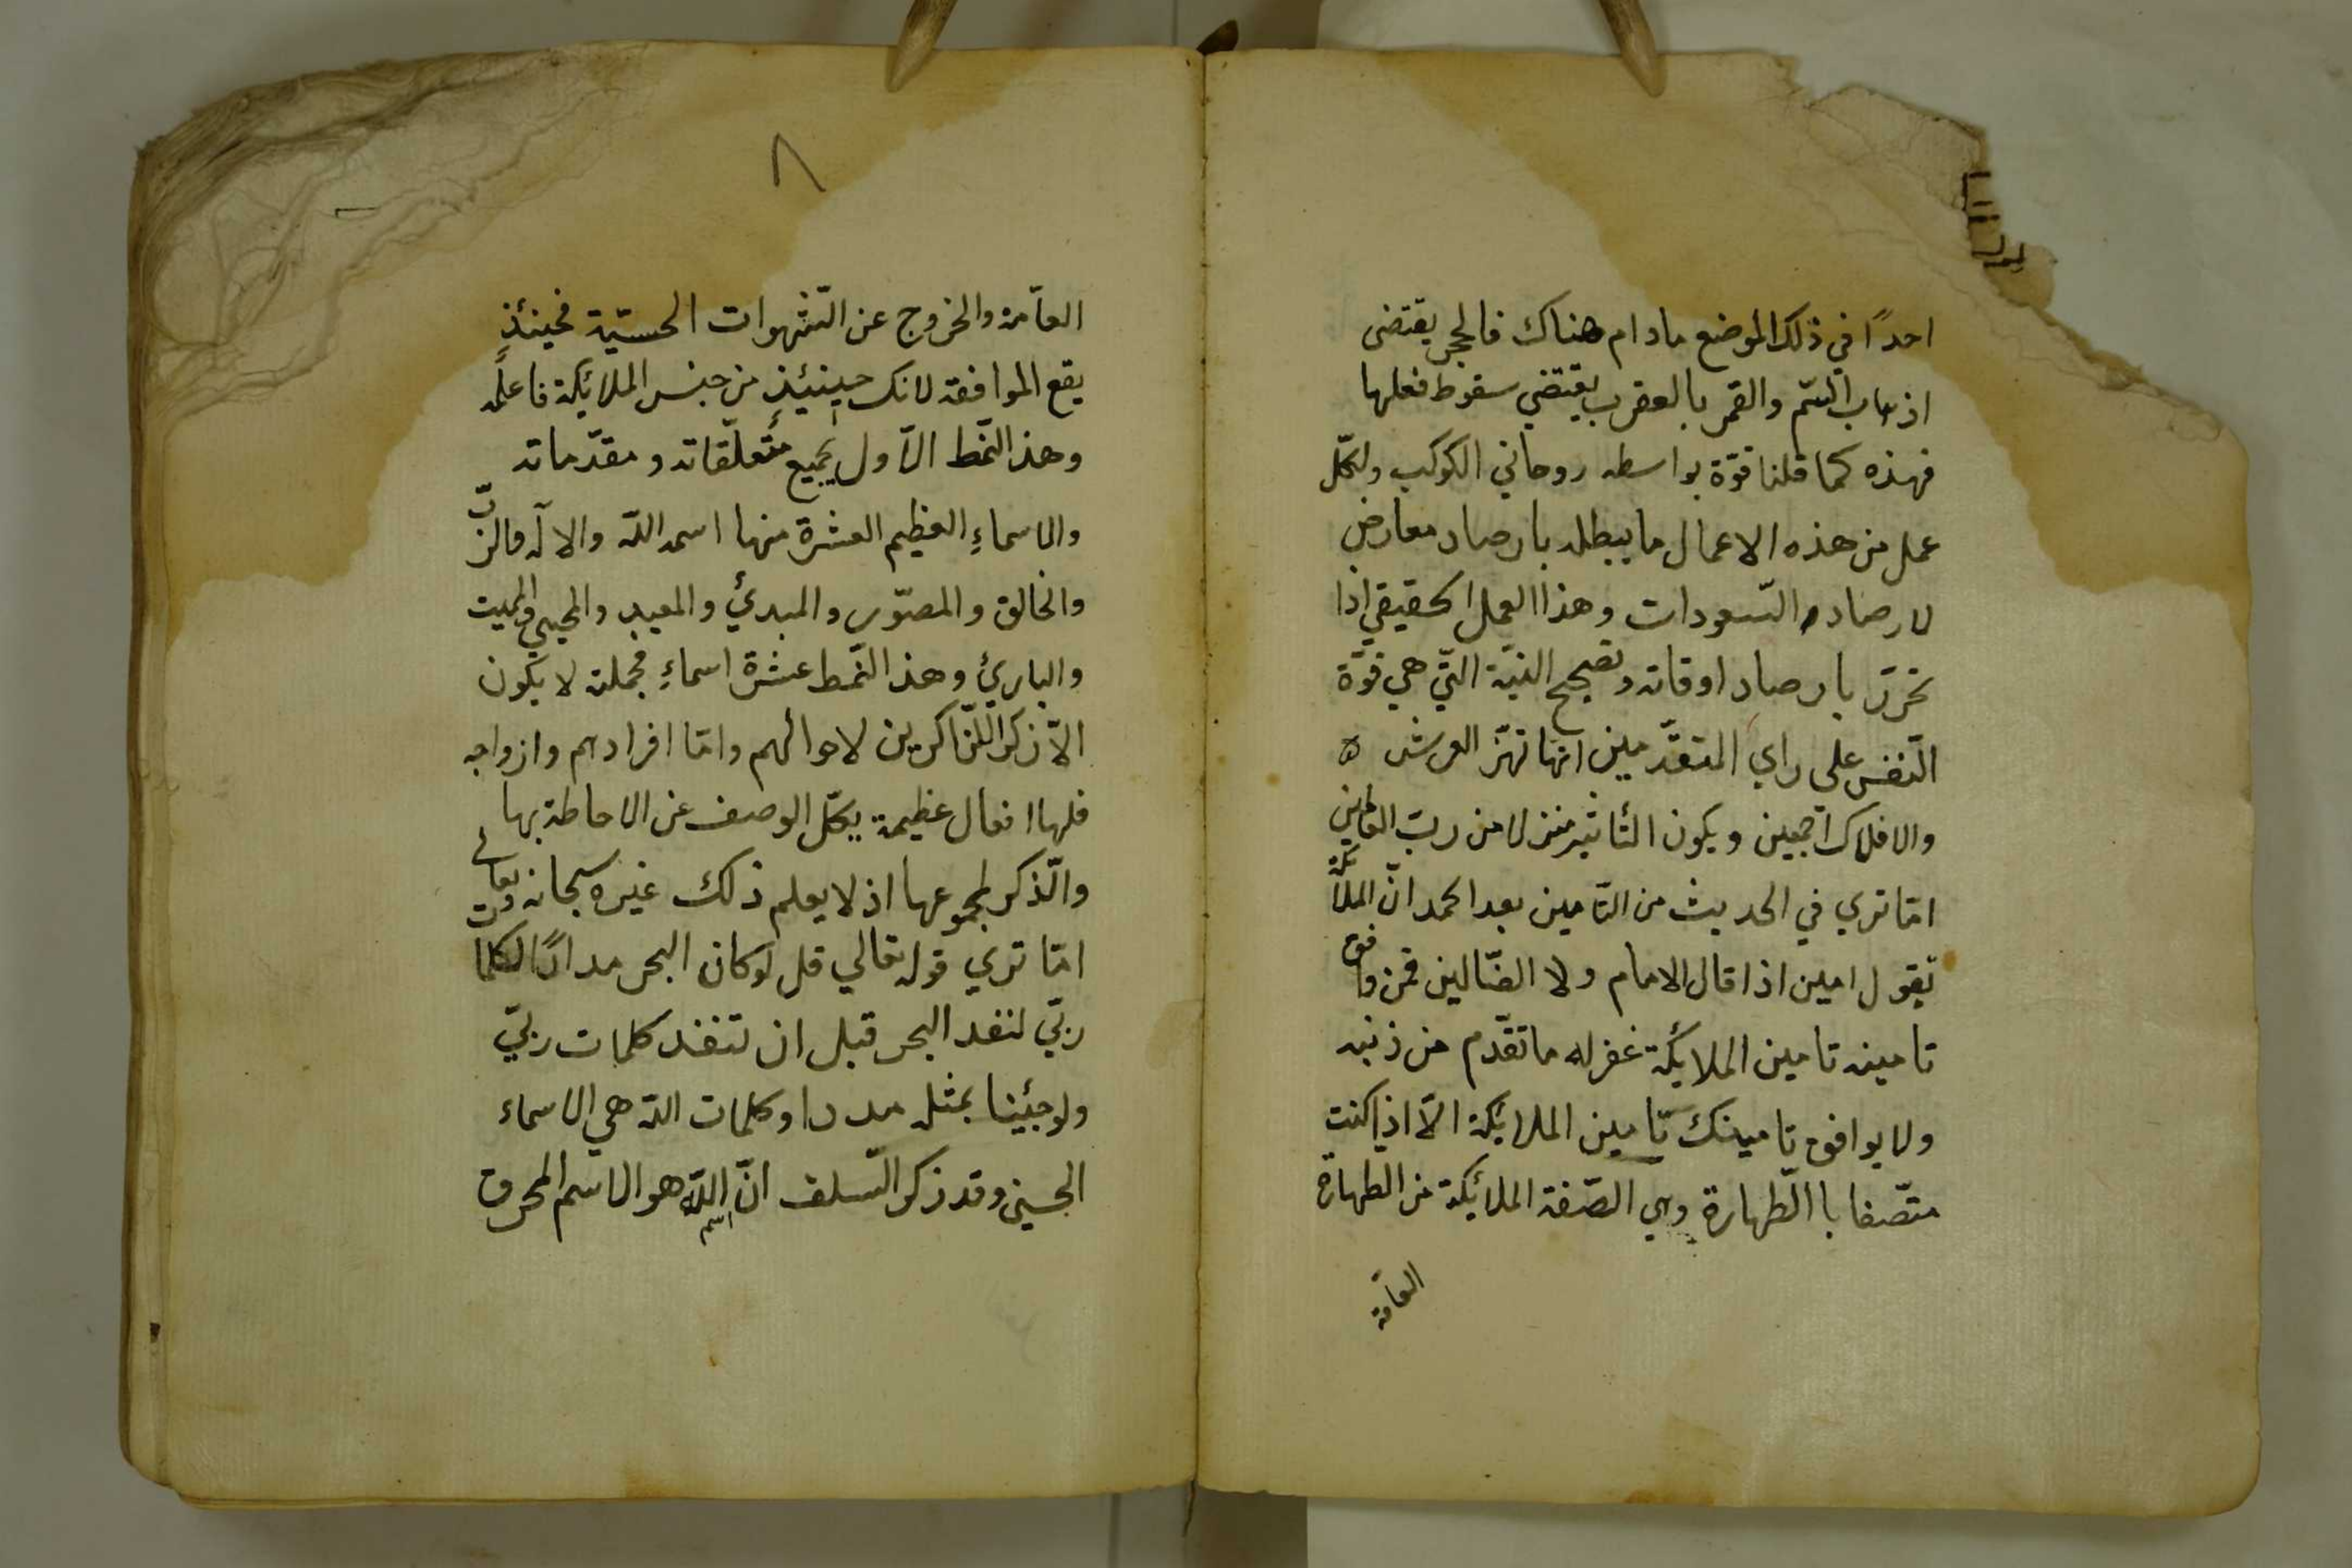 احدًا في ذلك الموضع مادام هناك فالحجر يقتضى
اذهاب السّم والقمر بالعقرب يقتضي سقوط فعلها
فهذه كما قلنا قوّة بواسطه روحاني الكوكب ولكلّ
عمل من هذه الاعمال ما يبطله بارصاد معارض
لارصاد السّعودات وهذا العمل الحقيقي اذا
تحرّر بارصاد اوقاته وتصحيح النيّة الّتي هي قوّة
النّفس على راي المتقدّمين انّها تهزّ العرش
والافلاك اجمعين ويكون التأثير منزلا من ربّ العالمين
امّا تري في الحديث من التّامين بعد الحمد انّ الملائكة
تقول امين اذا قال الامام ولا الضّالين فمن وافق
تامينه تامين الملائكة غفر له ما تقدّم من ذنبه
ولا يوافق تامينك تامين الملائكة الّا اذا كنت
متّصفا باالّطهارة وهي الصّفة الملائكة من الطهارة
العآمة
٨
العآمة والخروج عن الشّهوات الحسيّة فحينئذٍ
يقع الموافقة لانك حينئيذٍ من جنس الملائكة فاعلمه
وهذ النّمط الاّول بجميع متعلّقاته ومقدّماته
والاسماءِ العظيم العشرة منها اسمه اللّه والاله والربّ
والخالق والمصوّر والمبدئ والمعيد والمحيي والمميت
والبارئ وهذ النّمط عشرة اسماءٍ مجملة لا يكون
الاّ ذكر اللذّاكرين لاحوالهم وامّا افرادهم وازواجه
فلها افعال عظيمة يكلّ الوصف عن الاحاطة بها
والذّكر لمجموعها اذ لا يعلم ذلك غيره سبحانه وتعالى
امّا تري قوله تعالي قل لو كان البحر مدادًا لكلمات
ربّي لنفد البحر قبل ان تنفد كلمات ربيّ
ولو جئينا بمثله مددا وكلمات اللّه هي الاسماء
الحسني وقد ذكر السّلف انّ اسم اللّه هو الاسم المحروق